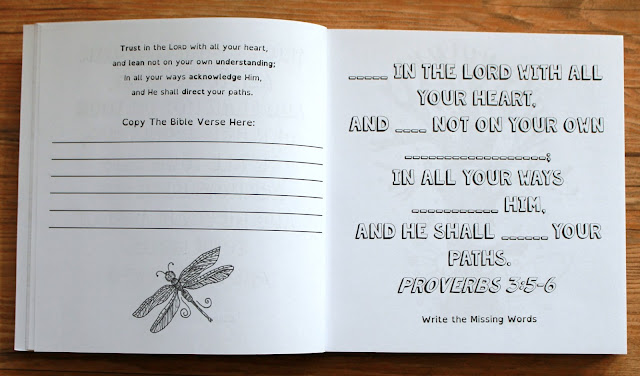 Trust in the LORD with all your heart,
and lean not on your own understanding;
In all your ways acknowledge Him,
and He shall direct your paths.
Copy The Bible Verse Here:
_____ IN THE LORD WITH ALL
YOUR HEART,
AND ____ NOT ON YOUR OWN
_____________;
IN ALL YOUR WAYS
___________ HIM,
AND HE SHALL ______ YOUR
PATHS.
PROVERBS 3:5-6
Write the Missing Words